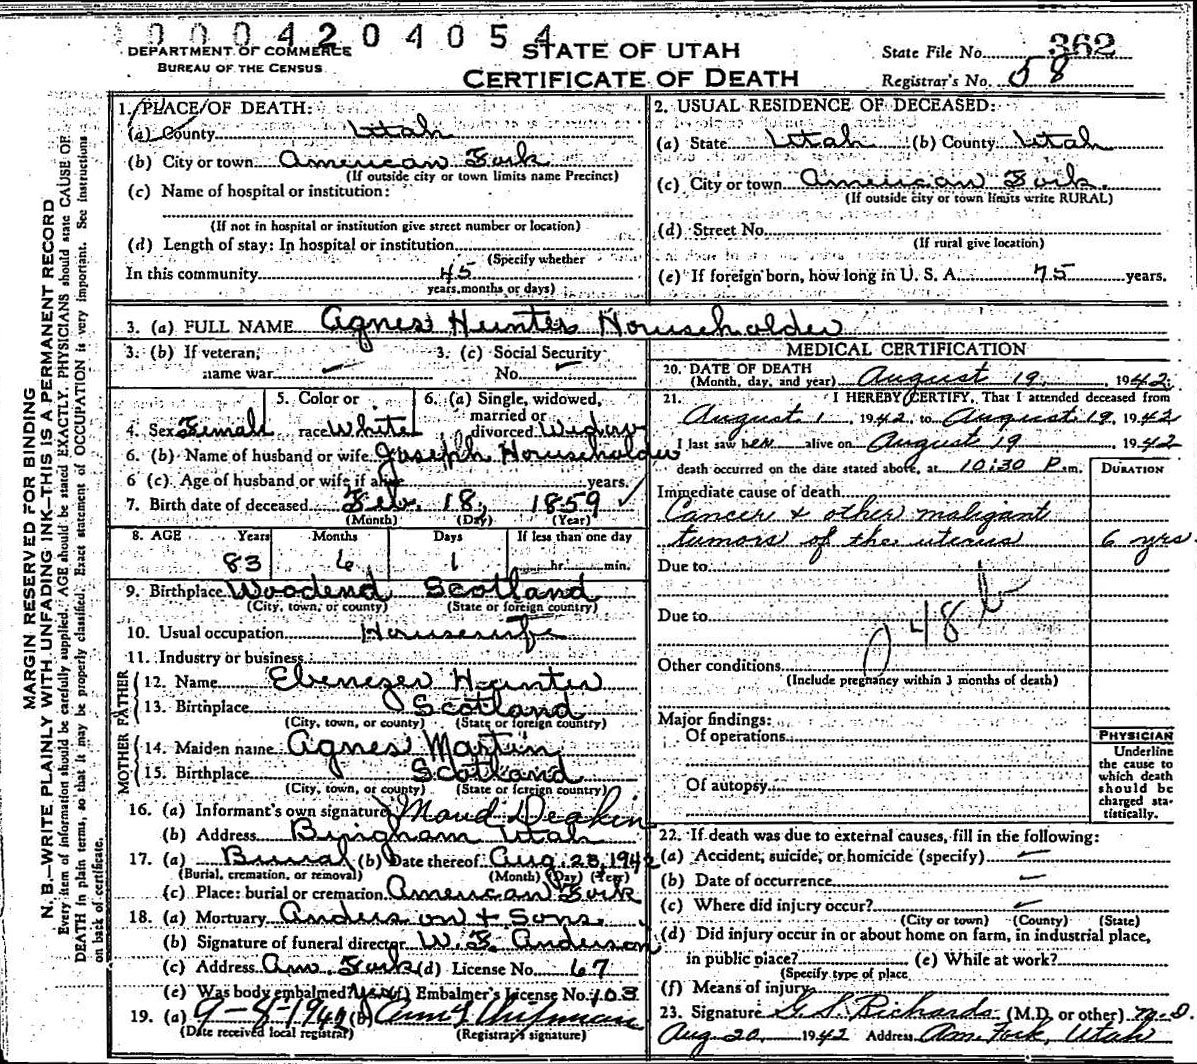 0 0 0 4 2 0 4 0 5 4
DEPARTMENT OF COMMERCE
BUREAU OF THE CENSUS
STATE OF UTAH
CERTIFICATE OF DEATH
State File No. 362
Registrar's No. 58
MARGIN RESERVED FOR BINDING
N. B.—WRITE PLAINLY WITH UNFADING INK—THIS IS A PERMANENT RECORD
Every item of information should be carefully supplied. AGE should be stated EXACTLY. PHYSICIANS should state CAUSE OF
DEATH in plain terms, so that it may be properly classified. Exact statement of OCCUPATION is very important. See instructions
on back of certificate.
1. PLACE OF DEATH:
(a) County Utah
(b) City or town American Fork
(If outside city or town limits name Precinct)
(c) Name of hospital or institution:
(If not in hospital or institution give street number or location)
(d) Length of stay: In hospital or institution
(Specify whether
In this community 45
years, months or days)
2. USUAL RESIDENCE OF DECEASED:
(a) State Utah (b) County Utah
(c) City or town American Fork.
(If outside city or town limits write RURAL)
(d) Street No.
(If rural give location)
(e) If foreign born, how long in U. S. A. 75 years.
3. (a) FULL NAME Agnes Hunter Householder
3. (b) If veteran, name war
3. (c) Social Security No.
4. Sex Female
5. Color or race White
6. (a) Single, widowed, married or divorced Widow
6. (b) Name of husband or wife Joseph Householder
6 (c). Age of husband or wife if alive years.
7. Birth date of deceased Feb. 18, 1859
(Month) (Day) (Year)
8. AGE Years Months Days If less than one day
83 6 1 hr. min.
9. Birthplace Woodend Scotland
(City, town, or county) (State or foreign country)
10. Usual occupation Housewife
11. Industry or business
FATHER
12. Name Ebenezer Hunter
13. Birthplace Scotland
(City, town, or county) (State or foreign country)
MOTHER
14. Maiden name Agnes Martin
15. Birthplace Scotland
(City, town, or county) (State or foreign country)
16. (a) Informant's own signature Maud Deakin
(b) Address Brigham Utah
17. (a) Burial (b) Date thereof Aug. 23, 1942
(Burial, cremation, or removal) (Month) (Day) (Year)
(c) Place: burial or cremation American Fork
18. (a) Mortuary Anderson & Sons.
(b) Signature of funeral director W. E. Anderson
(c) Address Am. Fork (d) License No. 67
(e) Was body embalmed? Yes (f) Embalmer's License No. 103
19. (a) 9-8-1942 (b)
(Date received local registrar) (Registrar's signature)
MEDICAL CERTIFICATION
20. DATE OF DEATH
(Month, day, and year) August 19, 1942.
21. I HEREBY CERTIFY, That I attended deceased from
August 1, 1942 to August 19, 1942
I last saw her alive on August 19 1942
death occurred on the date stated above, at 10:30 P.m.
DURATION
Immediate cause of death
Cancer & other maligant
tumors of the uterus 6 yrs.
Due to
Due to
48b
Other conditions
(Include pregnancy within 3 months of death)
Major findings:
Of operations
Of autopsy
PHYSICIAN
Underline
the cause to
which death
should be
charged sta-
tistically.
22. If death was due to external causes, fill in the following:
(a) Accident, suicide, or homicide (specify)
(b) Date of occurrence
(c) Where did injury occur?
(City or town) (County) (State)
(d) Did injury occur in or about home on farm, in industrial place,
in public place? (e) While at work?
(Specify type of place
(f) Means of injury
23. Signature G. S. Richards (M.D. or other) M.D.
Aug 20, 1942 Address Am. Fork, Utah